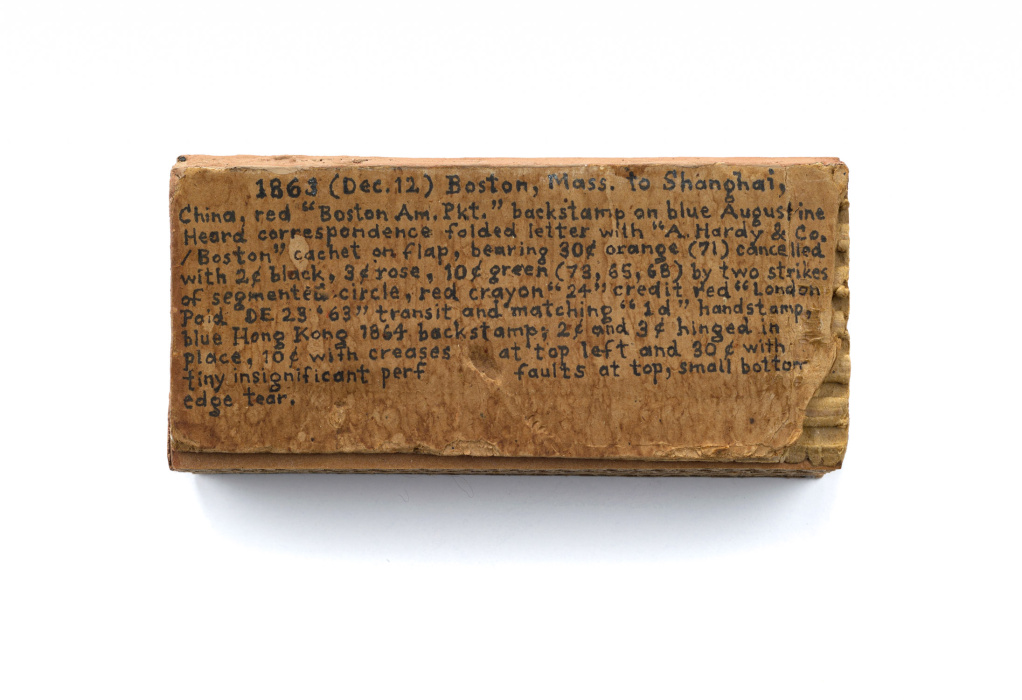 1863 (Dec. 12) Boston, Mass. to Shanghai,
China, red "Boston Am. Pkt." backstamp on blue Augustine
Heard correspondence folded letter with "A. Hardy & Co.
/Boston" cachet on flap, bearing 30¢ orange (71) cancelled
with 2¢ black, 3¢ rose, 10¢ green (73, 65, 68) by two strikes
of segmented circle, red crayon "24" credit red "London
Paid DE 23 '63" transit and matching "1d" handstamp,
blue Hong Kong 1864 backstamp; 2¢ and 3¢ hinged in
place, 10¢ with creases at top left and 30¢ with
tiny insignificant perf faults at top, small bottom
edge tear.